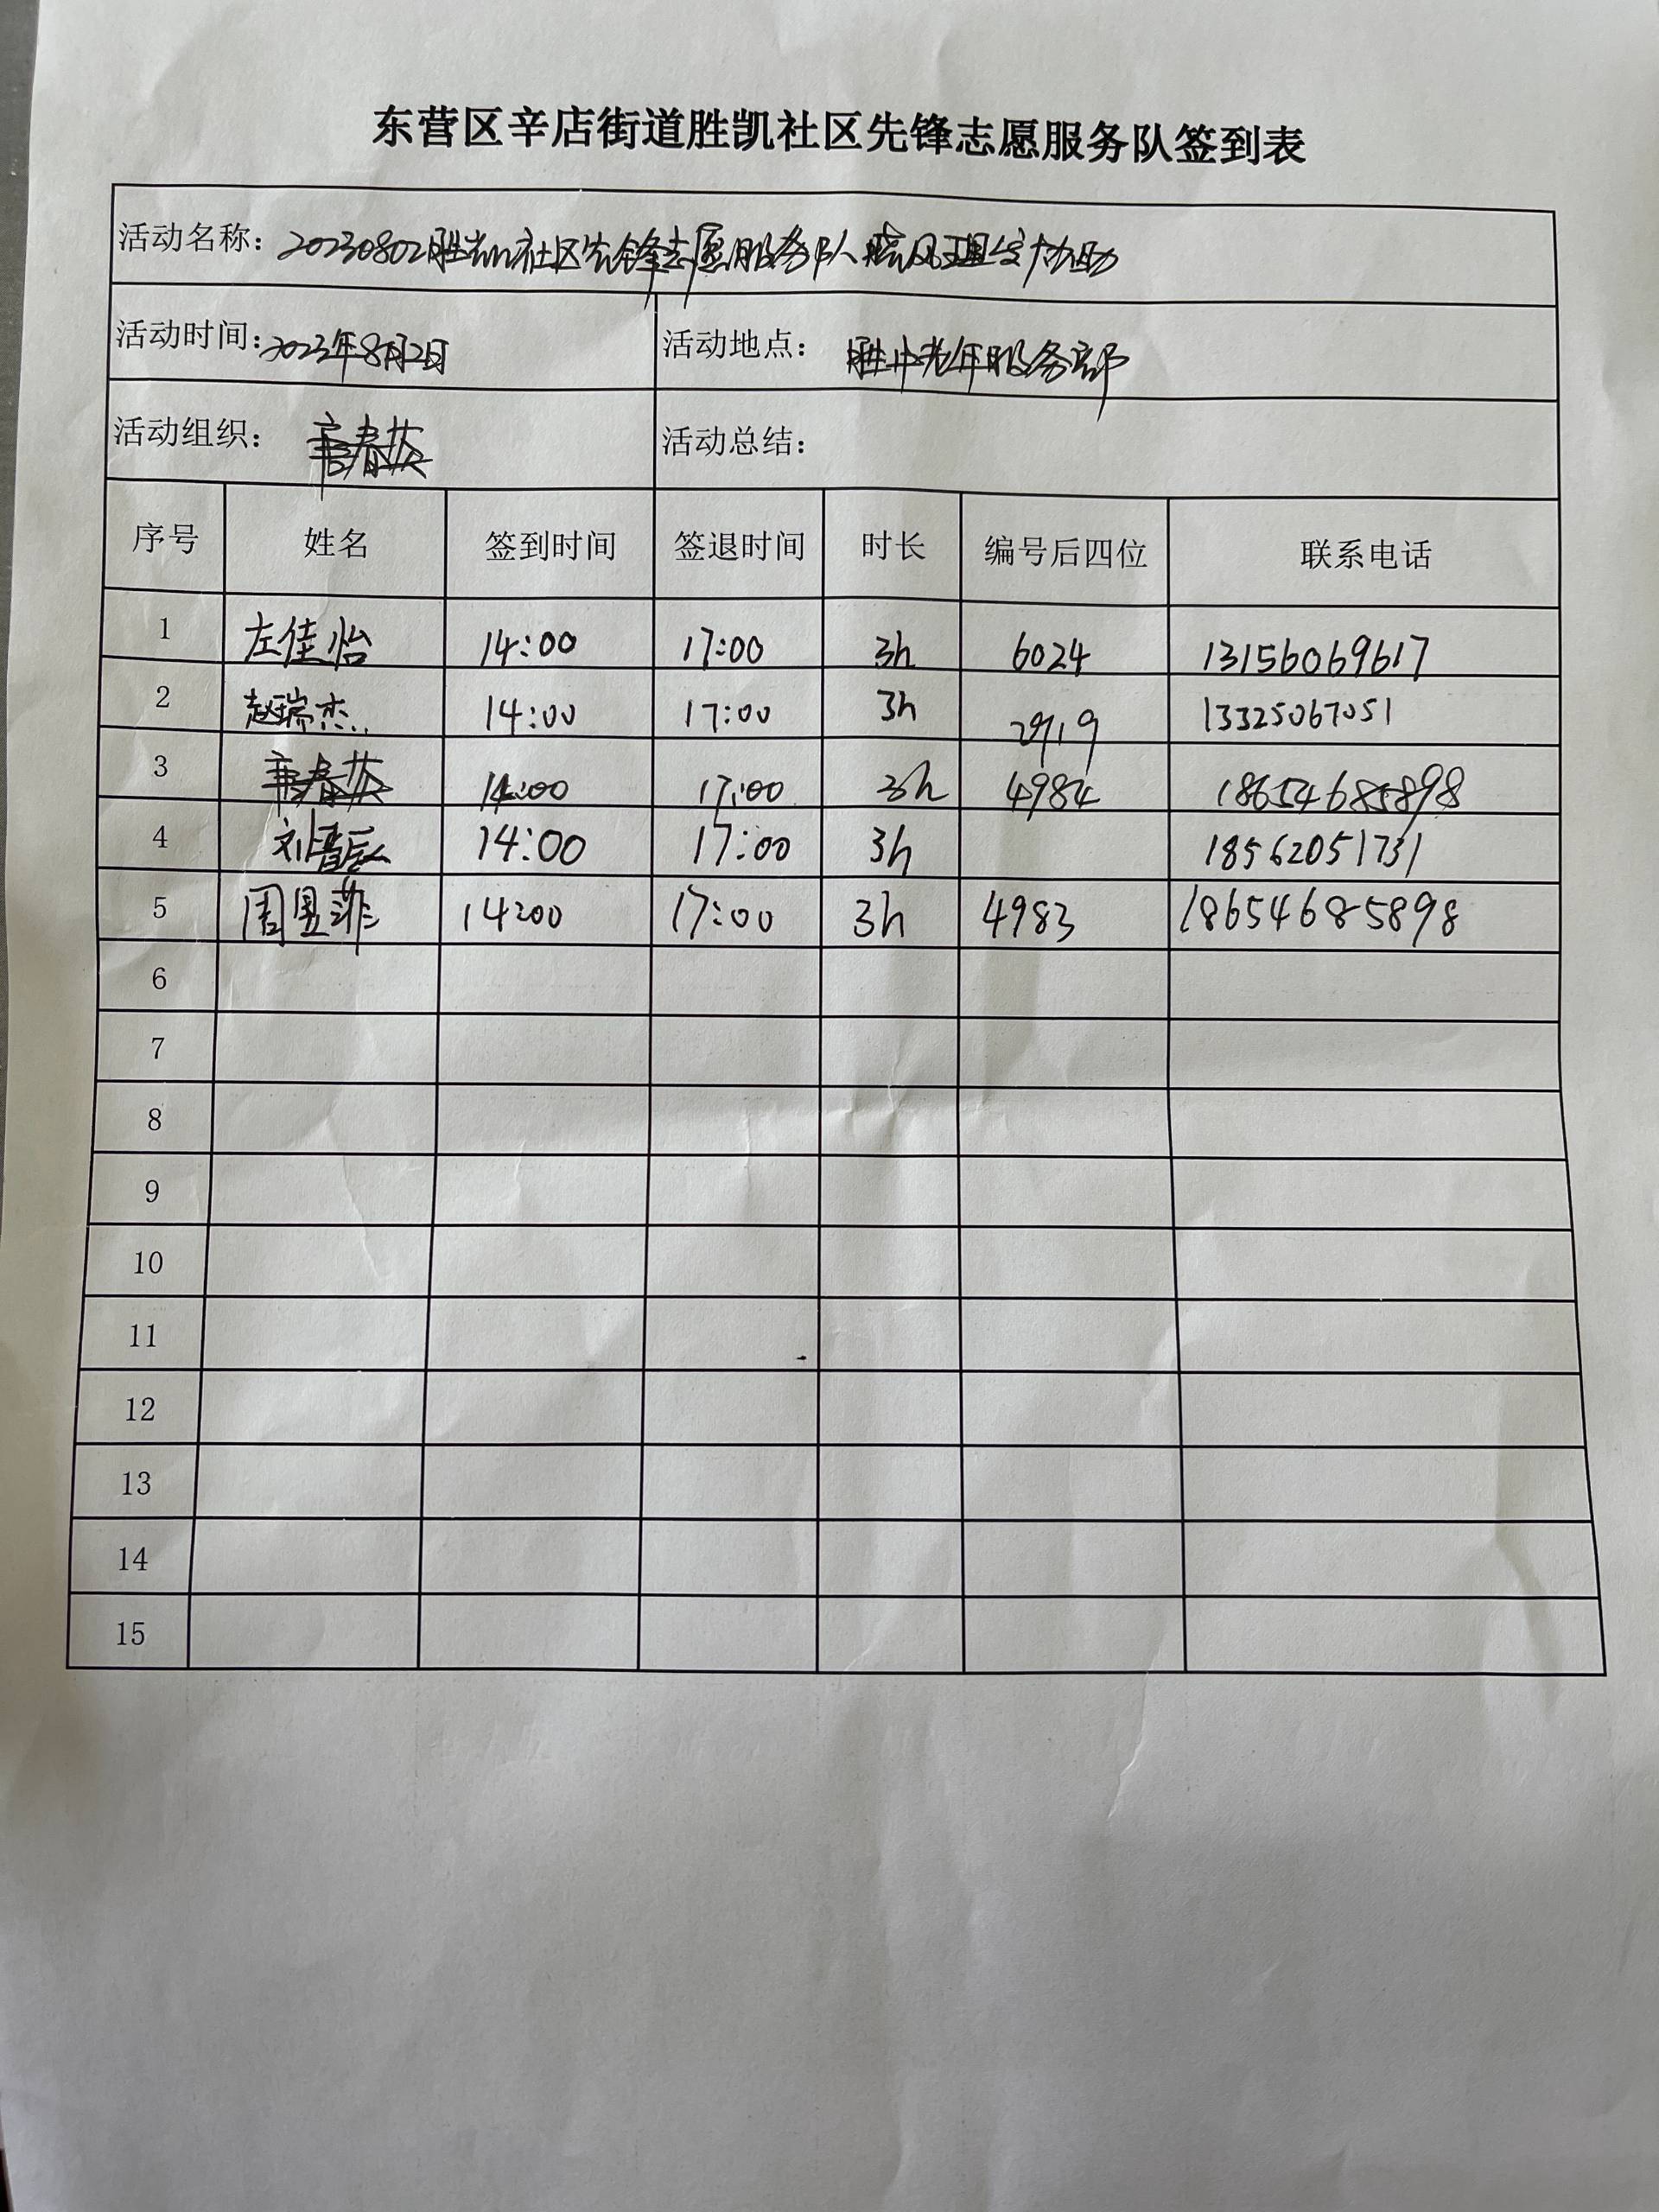 东营区辛店街道胜凯社区先锋志愿服务队签到表
活动名称：20230802胜凯社区先锋志愿服务队晓风理发协助
活动时间：2023年8月2日 活动地点：胜中老年服务部
活动组织： 春英 活动总结：
序号 姓名 签到时间 签退时间 时长 编号后四位 联系电话
1 左佳怡 14:00 17:00 3h 6024 13156069617
2 赵瑞杰 14:00 17:00 3h 2919 13325067051
3 春英 14:00 17:00 3h 4984 18654685898
4 刘晋 14:00 17:00 3h 18562051731
5 周昱菲 14:00 17:00 3h 4983 18654685898
6
7
8
9
10
11
12
13
14
15